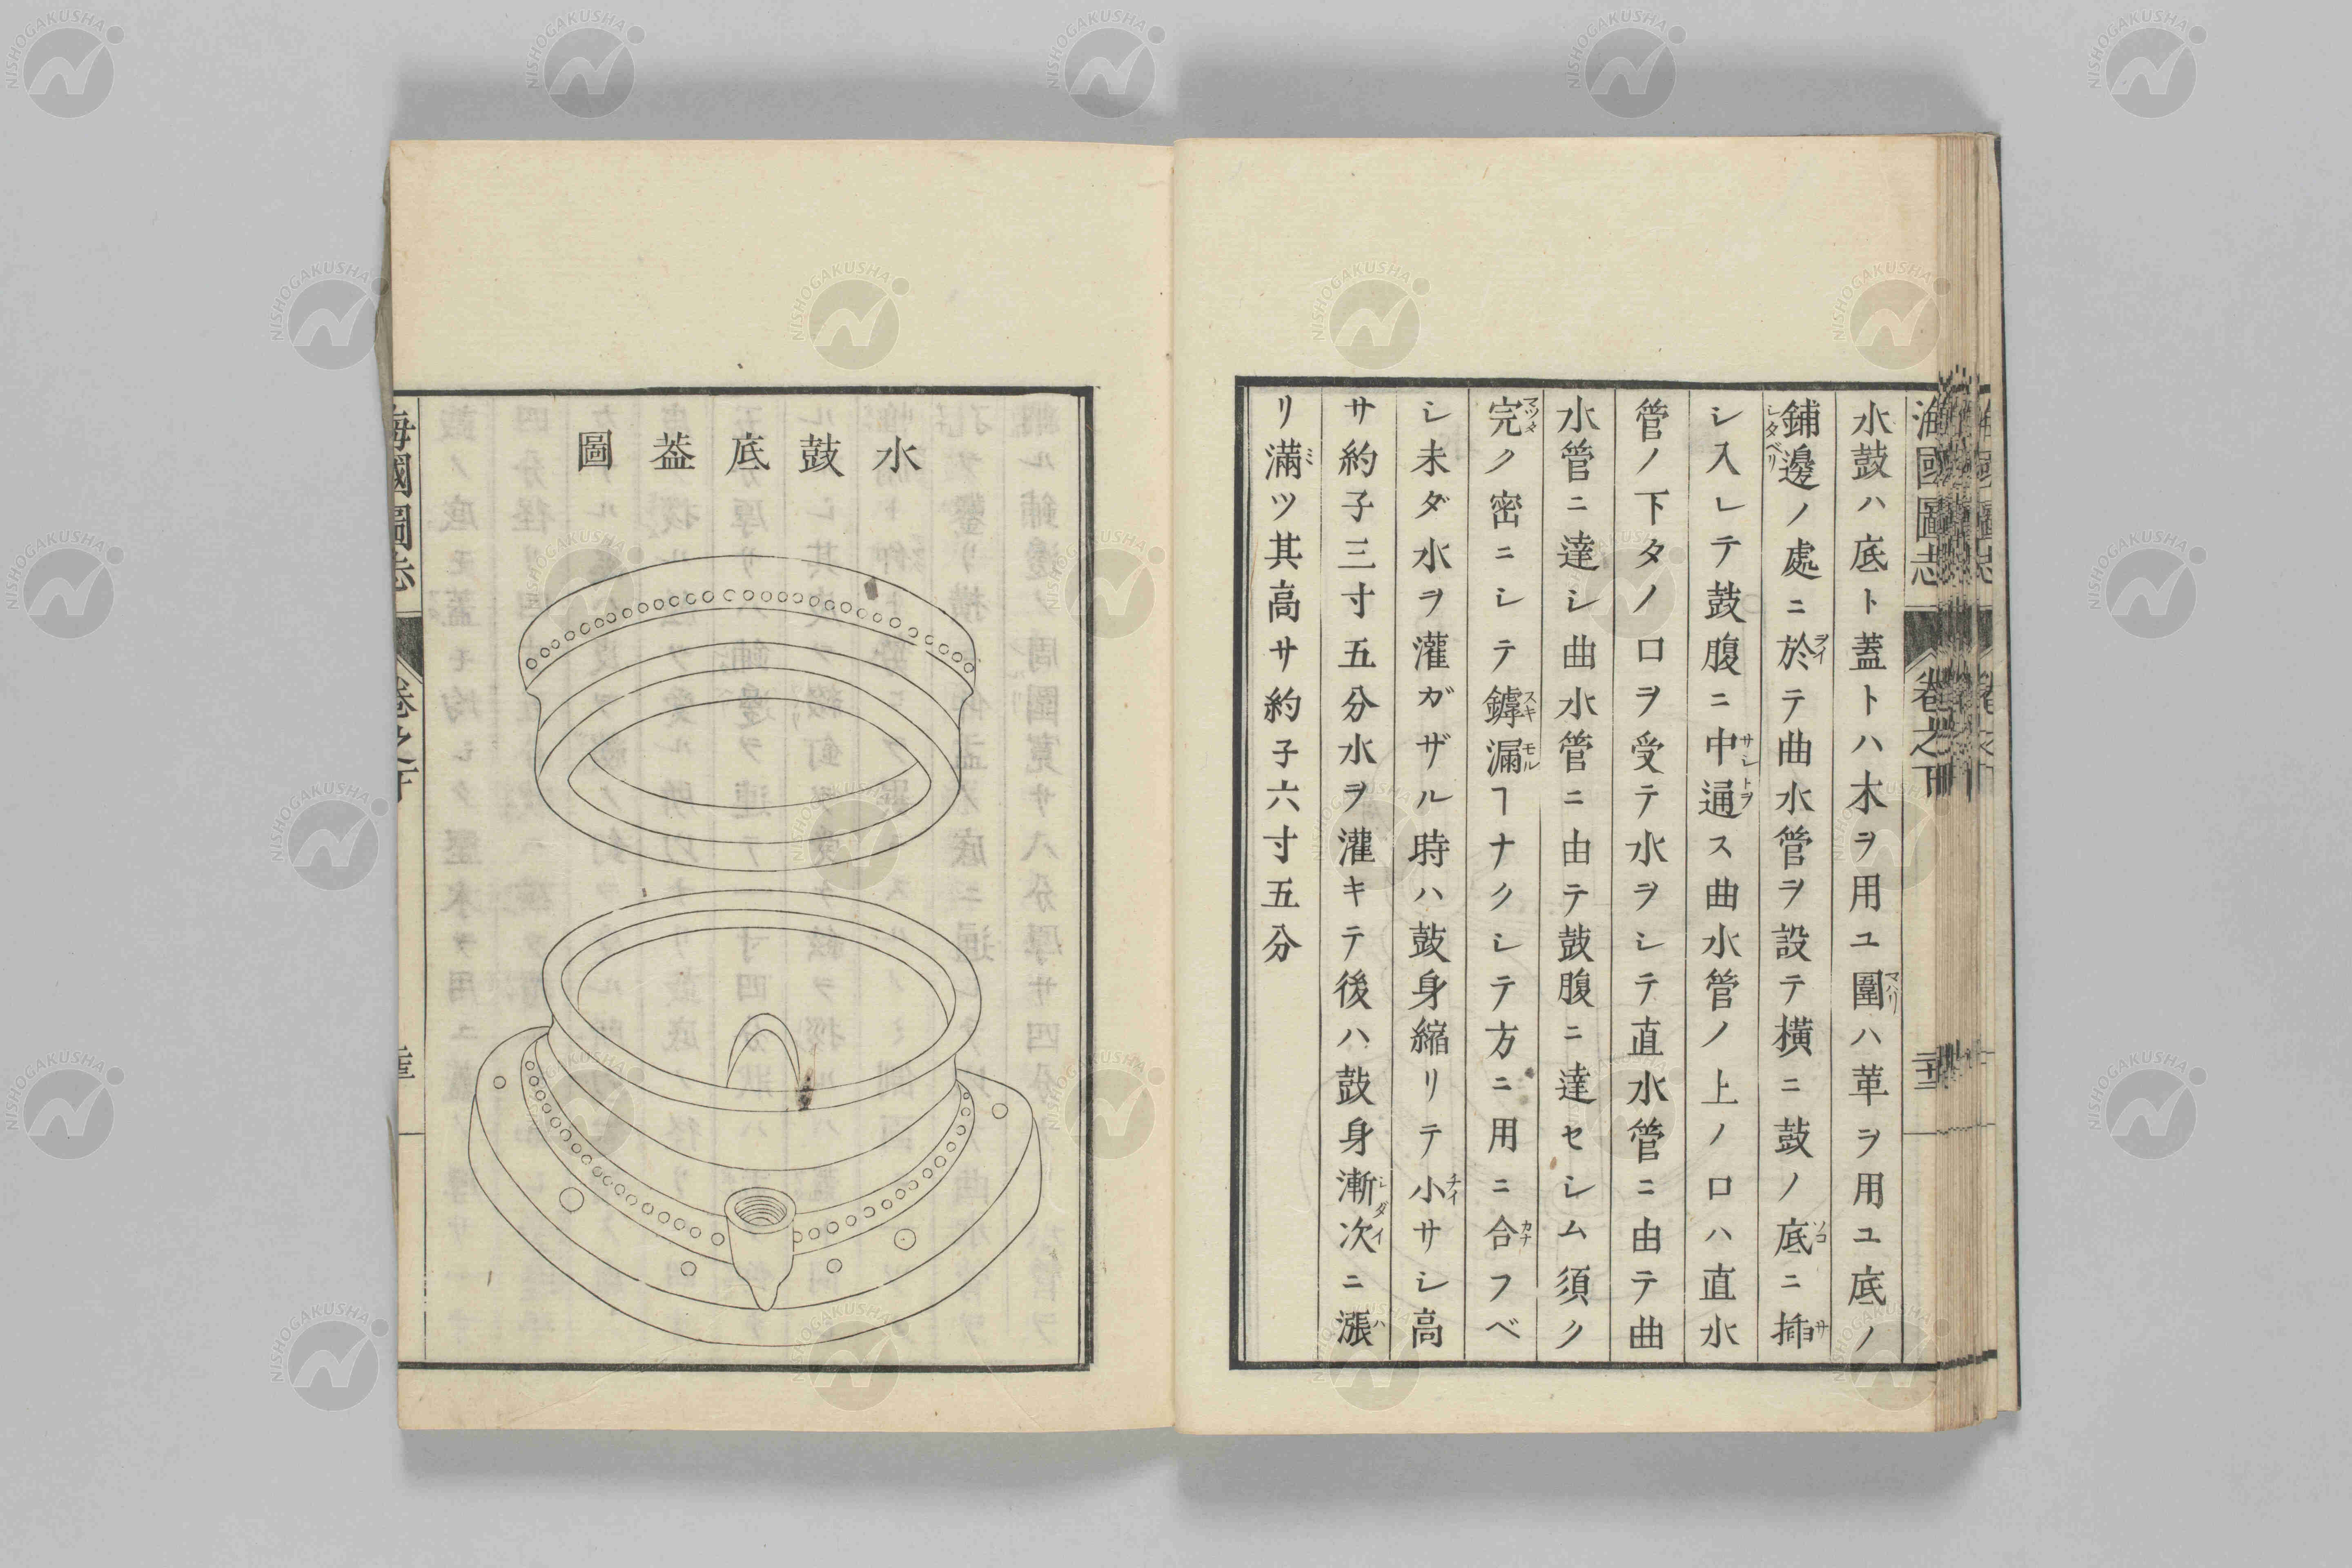 海國圖志
卷之下
水鼓ハ底ト蓋トハ木ヲ用ユ圍ハ革ヲ用ユ底ノ
マハリ
鋪邊ノ處ニ於テ曲水管ヲ設テ橫ニ鼓ノ底ニ揷
シタベリ
ヲイ
ソコ
サ
シ入レテ鼓腹ニ中通ス曲水管ノ上ノ口ハ直水
サシトヲ
管ノ下タノ口ヲ受テ水ヲシテ直水管ニ由テ曲
水管ニ達シ曲水管ニ由テ鼓腹ニ達セシム須ク
完ク密ニシテ罅漏ヿナクシテ方ニ用ニ合フベ
マツタ
スキ
モル
カナ
シ未ダ水ヲ灌ガザル時ハ鼓身縮リテ小サシ高
チイ
サ約子三寸五分水ヲ灌キテ後ハ鼓身漸次ニ漲
シダイ
ハ
リ滿ツ其高サ約子六寸五分
ミ
水鼓底葢圖
海國圖志
NISHOGAKUSHA